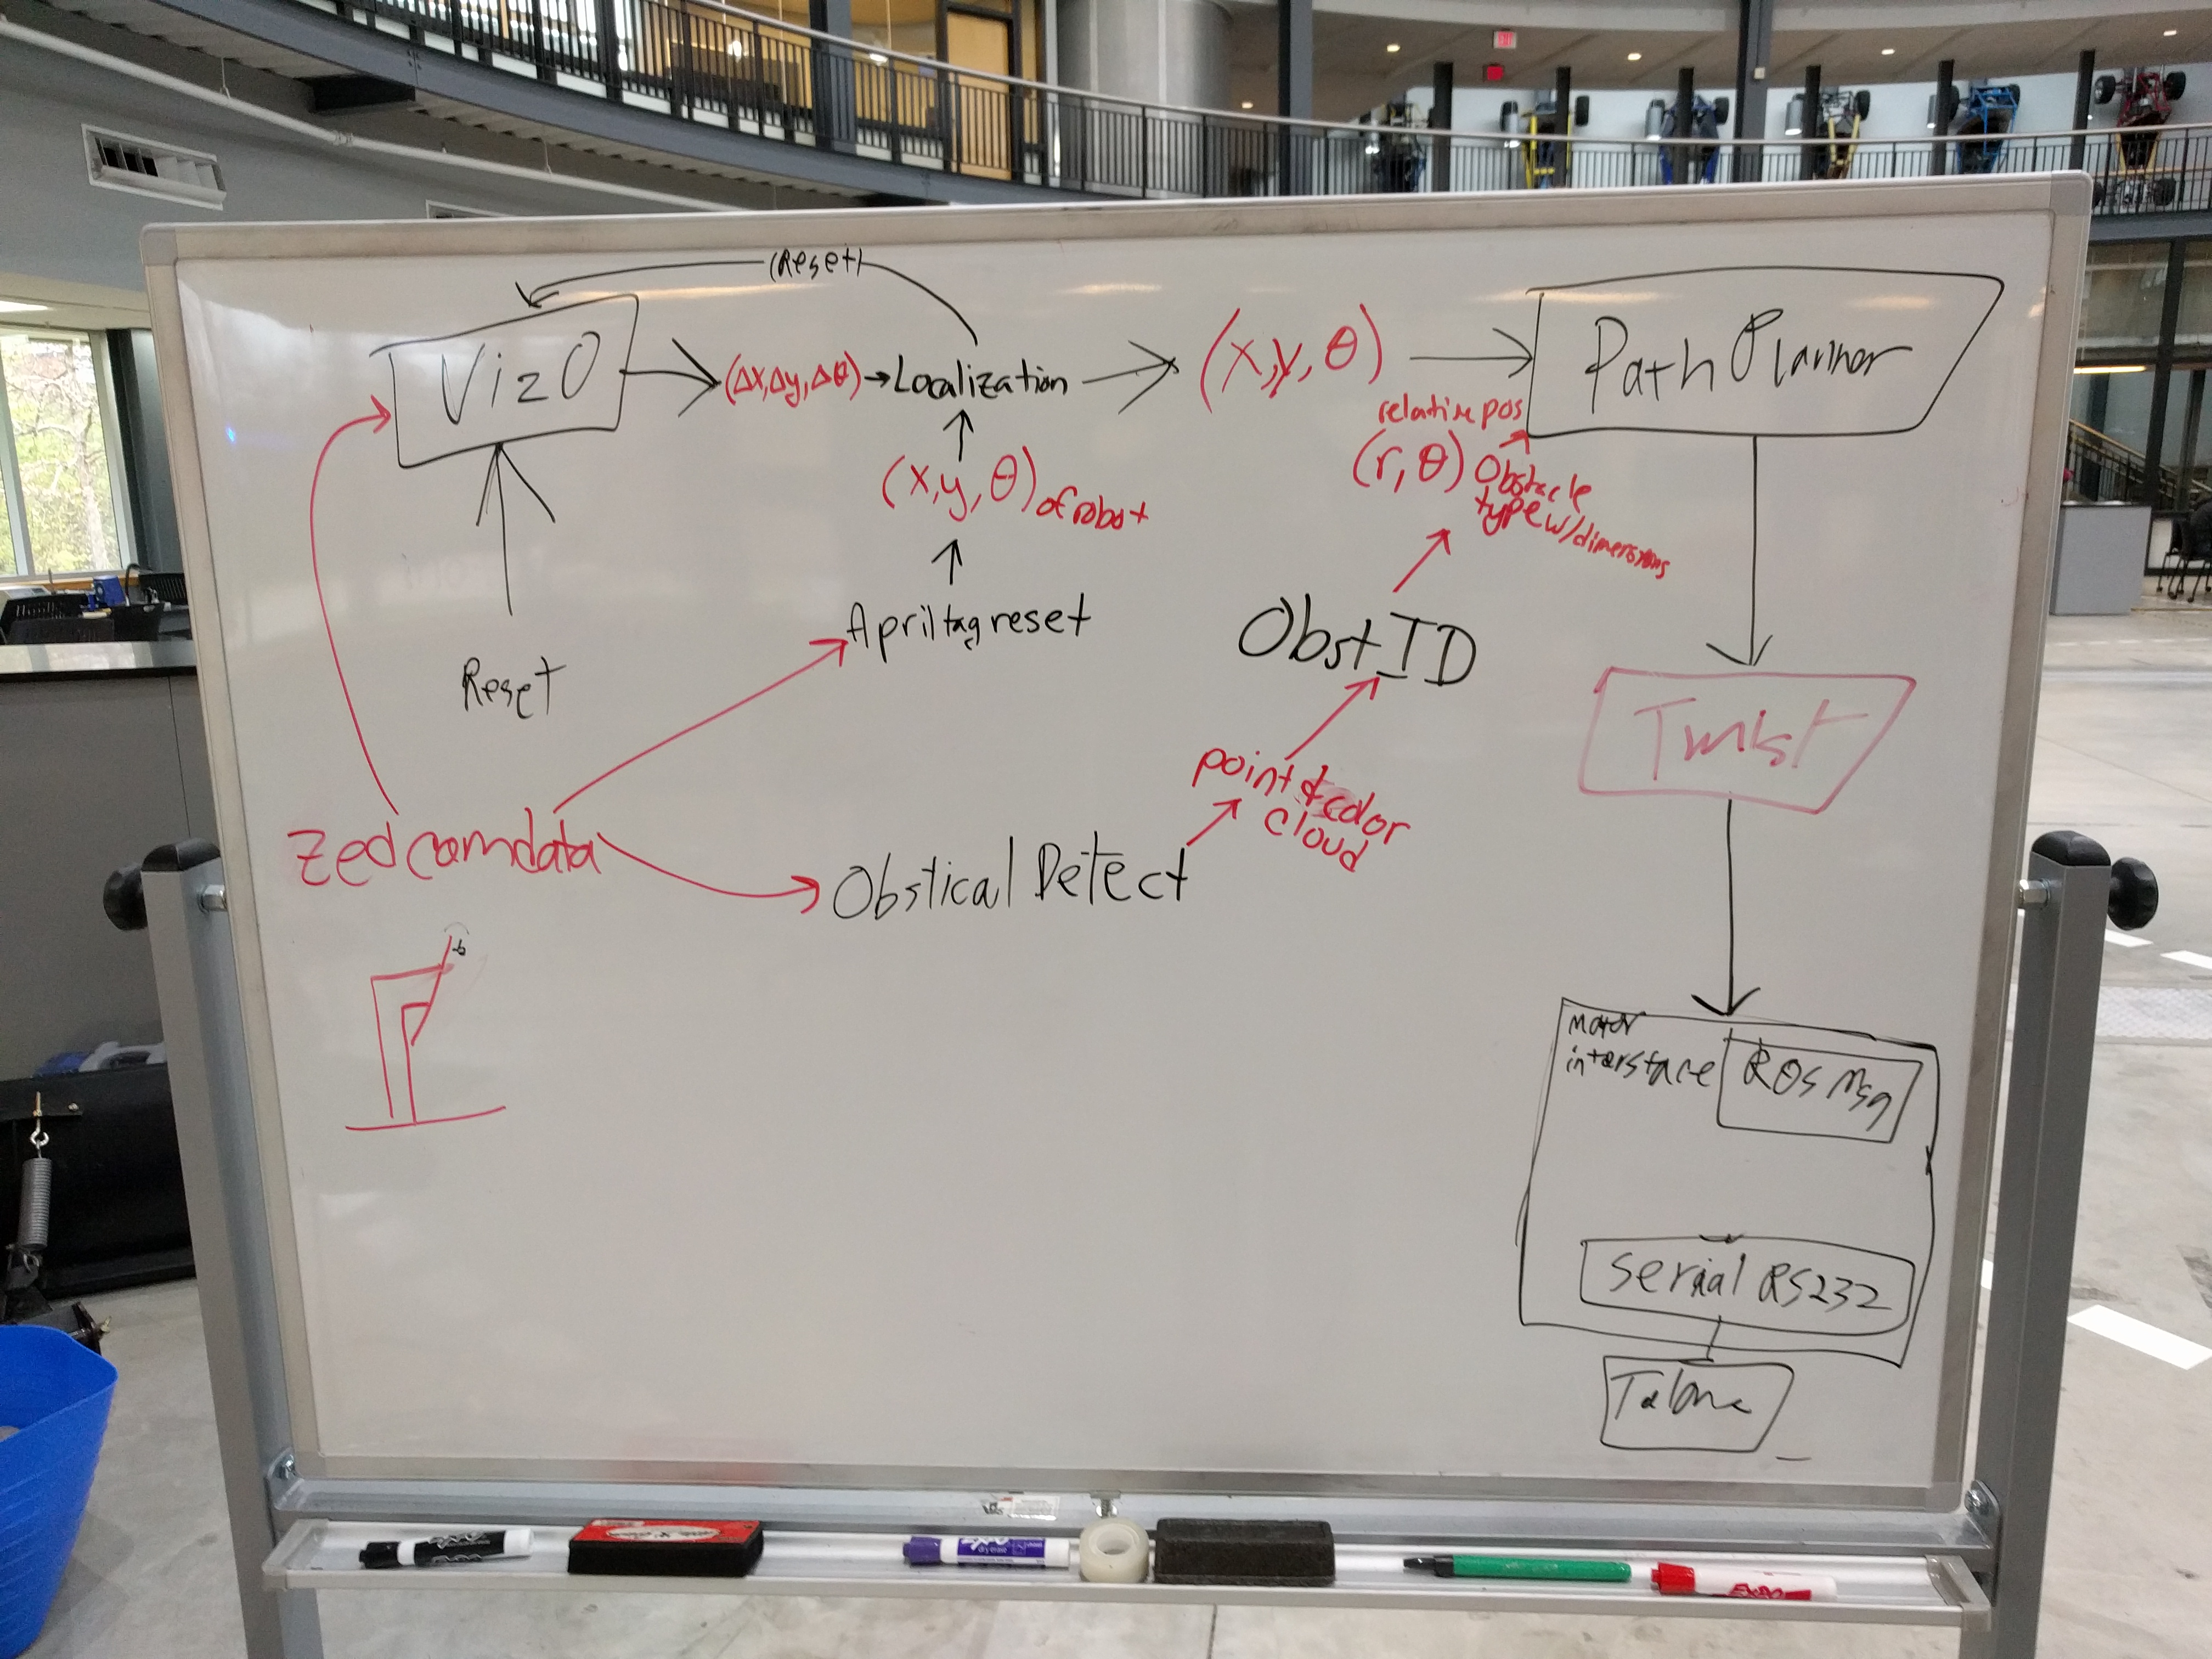 (Reset)
VizO
(Δx,Δy,Δθ)→Localization
(x,y,θ)
Path Planner
relative pos
(x,y,θ) of robot
(r,θ) Obstacle
type w/dimensions
Apriltag reset
Obst ID
Reset
Twist
point & color
cloud
Zed cam data
Obstical Detect
Motor
interstace
ROS Msg
Serial RS232
EXPO